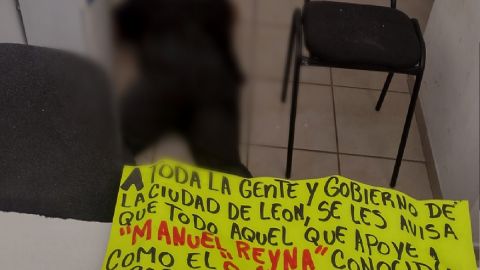 A TODA LA GENTE Y GOBIERNO DE
LA CIUDAD DE LEON, SE LES AVISA
QUE TODO AQUEL QUE APOYE Y
"MANUEL REYNA"
COMO EL